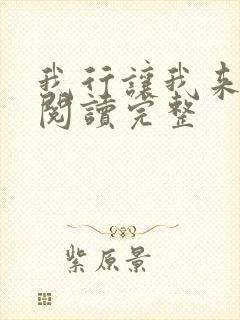 我行讓我来
閱讀完整
紫原景